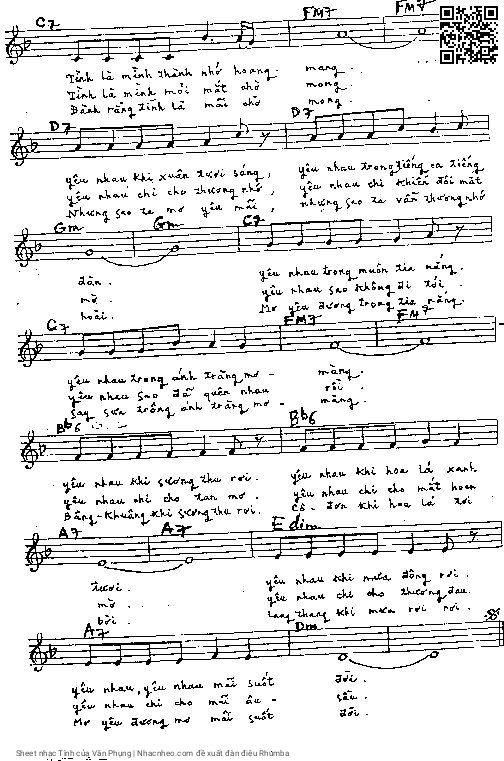 C7 FM7 FM7
Tình là mình thành nhớ hoang mang.
Tình là mình môi mắt chờ mong.
Đành rằng tình là mãi chờ mong.
D7 D7
yêu nhau khi xuân tươi sáng, yêu nhau trong tiếng ca tiếng
yêu nhau chỉ cho thương nhớ, yêu nhau chỉ khiến đôi mắt
Nhưng sao ta mơ yêu mãi, nhưng sao ta vẫn thương nhớ
Gm Gm C7
đàn. yêu nhau trong muôn tia nắng.
mờ. yêu nhau sao không đi tới.
hoài. Mơ yêu đương trong tia nắng.
C7 FM7 FM7
yêu nhau trong ánh trăng mơ - màng.
yêu nhau sao đã quên nhau rồi.
Say sưa trong ánh trăng mơ - màng.
Bb6 Bb6
yêu nhau khi sương thu rơi. yêu nhau khi hoa lá xanh
yêu nhau chỉ cho tan mơ. yêu nhau chỉ cho mắt hoen
Bâng-khuâng khi sương thu rơi. Cô-đơn khi hoa lá tơi
A7 A7 Edim
tươi. yêu nhau khi mưa đông rơi.
mờ. yêu nhau chỉ cho thương đau.
bời. Lang thang khi mưa rơi rơi.
A7 Dm
yêu nhau, yêu nhau mãi suốt đời.
yêu nhau chỉ cho mãi âu - sầu.
Mơ yêu đương mơ mãi suốt đời.
Sheet nhạc Tình của Văn Phụng | Nhacnheo.com đề xuất đàn điệu Rhumba